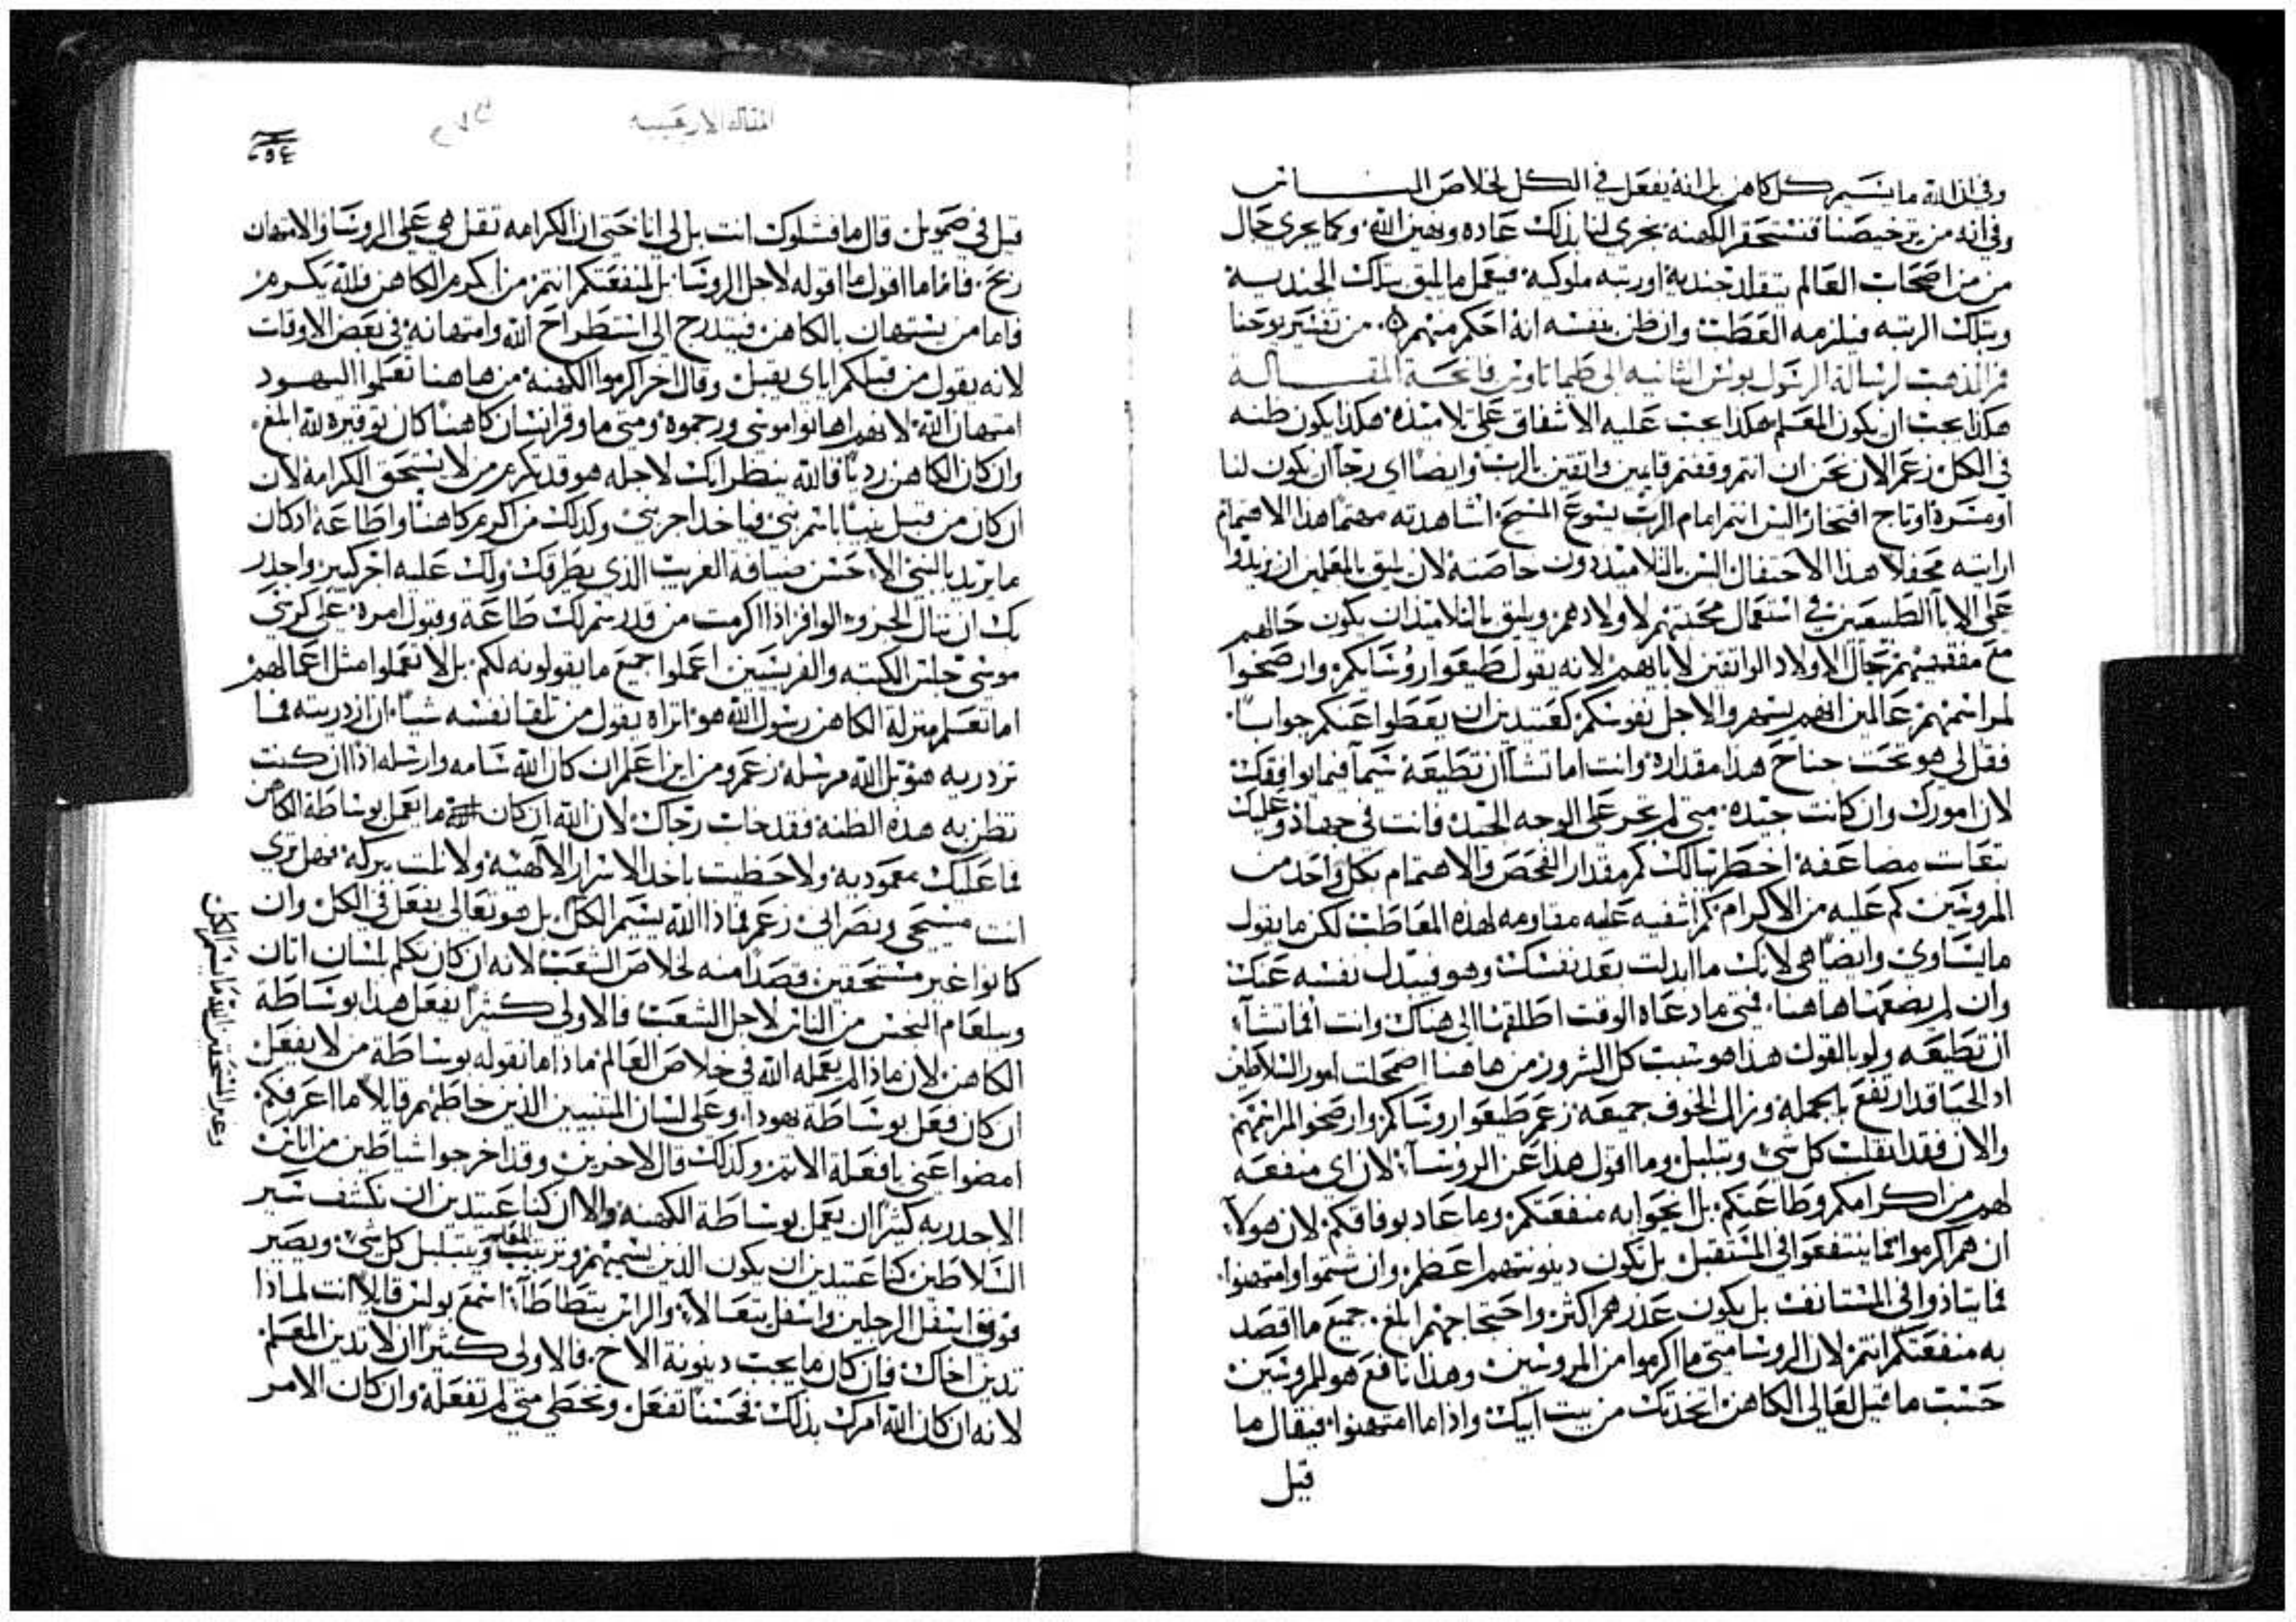 وفي ان الله ما يشيم كل كاهن بل انه يفعل في الكل لخلاص الناس
وفي انه من ترخيصنا فنستحقر الكهنه يجري لنا بذلك عاده ونهين الله وكما يجري حال
من من اصحاب العالم يتقلد جنديه او رتبه ملوكيه فيعمل ما يليق بتلك الجنديه
وبتلك الرتبه فيلزمه العطب وان ظن بنفسه انه احكم منهم من تفسير يوحنا
فم الذهب لرسالة الرسول بولس الثانيه الى طيماثاوس فاتحة المقالة
هكذا يجب ان يكون المعلم هكذا يجب عليه الاشفاق على تلاميذه هكذا يكون ظنه
في الكل زعم الان نحن ان انتم وقفتم قايمين واثقين بالرب وايضا اي رجا ان يكون لنا
او مسرة او تاج افتخار اليس انتم امام الرب يسوع المسيح اشاهدته مهتما هذا الاهتمام
ارايته محفلا هذا الاحتفال اليس بالتلاميذ دون خاصته لان يليق بالمعلمين ان يزيدوا
على الابا الطبيعيين في استعمال محبتهم لاولادهم ويليق بالتلاميذ ان يكون حالهم
مع مفقههم حال الاولاد الواثقين لابايهم لانه يقول طيعوا روسايكم وارضخوا
لمراسمهم عالمين انهم يسهروا لاجل نفوسكم كعتيدين ان يعطوا عنكم جوابا
فقل لي هو تحت جناح هذا مقداره وانت اما تشا ان تطيعه سيما فيما يوافقك
لان امورك وان كانت جيده متى لم تجر على الوجه الجيد فانت في جهاد وعليك
تبعات مضاعفه اخطر ببالك كم مقدار الفحص والاهتمام بكل واحد من
المروسين كم عليه من الاكرام كم اشفيه عليه مقاومه لهذه المعاطب لكن ما يقول
ما يساوي وايضا هي لانك ما ابدلت بعد نفسك وهو فيبدل نفسه عنك
وان لم يضعها هاهنا فمتى ما دعاه الوقت اطلقها الى هناك وانت افما تشا
ان تطيعه ولو بالقول هذا هو سبب كل الشرور من هاهنا اضمحلت امور السلاطين
اذ الحيا قد ارتفع بالجملة وزال الخوف جميعه زعم طيعوا روساكم وارضخوا لمراسمهم
والان فقد انقلب كل شي وتبلبل وما اقول هذا عن الروسا لان اي منفعه
لهم من اكرامكم وطاعتكم بل انحوا به منفعتكم وما عاد بوفاقكم لان هولا
ان هم اكرموا فما ينتفعوا في المستقبل بل تكون دينونتهم اعظم وان شتموا وامتهنوا
فما يتاذوا في المستانف بل يكون عذرهم اكثر واحتجاجهم ابلغ جميع ما اقصد
به منفعتكم انتم لان الروسا متى ما اكرموا من المروسين وهذا نافع هو للمروسين
حسب ما قيل لعالي الكاهن اتخذتك من بيت ابيك واذا ما امتهنوا فيقال ما
قيل
المقاله الاربعينيه
قيل في صمويل قال ما فشلوك انت بل لي انا حتى ان الكرامه تقل هي على الروسا والامتهان
ربح فاما ما اقول ما اقوله لاجل الروسا بل لمنفعتكم انتم من اكرم الكاهن فلله يكرم
فاما من يستهان بالكاهن فيتدرج الى استطراح الله وامتهانه في بعض الاوقات
لانه يقول من قبلكم اياي يقبل وقال اخر اكرموا الكهنة من هاهنا تعلموا اليهود
امتهان الله لانهم اهانوا موسى ورجموه ومتى ما وقر انسان كاهنا كان توقيره لله ابلغ
وان كان الكاهن رديا فالله ينظر انك لاجله هو قد تكرم من لا يستحق الكرامة لان
ان كان من قبل نبيا باسم نبي فياخذ اجر نبي وكذلك من اكرم كاهنا واطاعة اذ كان
ما يزيد بالنبي الا حسن ضيافة الغريب الذي يطرقك ولك عليه اجر كبير واجدر
بك ان تنال الجزو الوافر اذا اكرمت من قدر رسم لك طاعة وقبول امره على كرسي
موسى جلس الكتبه والفريسيين اعملوا جميع ما يقولونه لكم بل لا تعملوا مثل اعمالهم
اما تعلم منزلة الكاهن رسول الله هو اتراه يقول من تلقا نفسه شيا ان ازدريته فما
تزدريه هو بل الله مرسله زعم ومن اين اعلم ان كان الله شامه وارسله اذا ان كنت
تظن به هذه الظنة فقد خاب رجاك لان الله ان كان ما يعمل بوساطة الكاهن
فما عليك معموديه ولا حظيت باخذ الاسرار الالاهيه ولا نلت بركه فهل ترى
انت مسيحي ونصراني زعم فماذا الله يشيم الكل بل هو تعالى يفعل في الكل وان
كانوا غير مستحقين قصدا منه لخلاص الشعب لانه ان كان تكلم لسان اتان
وبلعام النجس من الناس لاجل الشعب فالاولى كثيرا يفعل هذا بوساطة
الكاهن لان ماذا لم يعمله الله في خلاص العالم ماذا ما نقوله بوساطة من لا يفعل
ان كان فعل بوساطة يهوذا وعلى لسان المتنبيين الذين خاطبهم قايلا ما اعرفكم
امضوا عني يا فعلة الاثم وكذلك قال لاخرين وقد اخرجوا شياطين من اناس
الاجدر به كثيرا ان يعمل بوساطة الكهنه والا ان كنا عتيدين ان نكشف سير
السلاطين كنا عتيدين ان يكون الذين يشيمهم وترتيب المعلم ويتبلبل كل شي ويصير
فوق اسفل الرجلين واسفل يتعالا والراس يتطاطا اسمع بولس قايلا انت لماذا
تدين اخاك فان كان ما يجب دينونة الاخ فالاولى كثيرا ان لا تدين المعلم
لانه ان كان الله امرك بذلك فحسنا تفعل وتخطي متى لم تفعله وان كان الامر
وغير المستحقين الله ما يشيم الكل